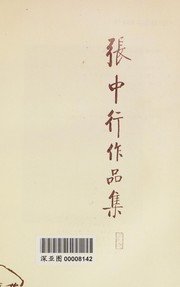 張中行作品集
深圣图 00008142